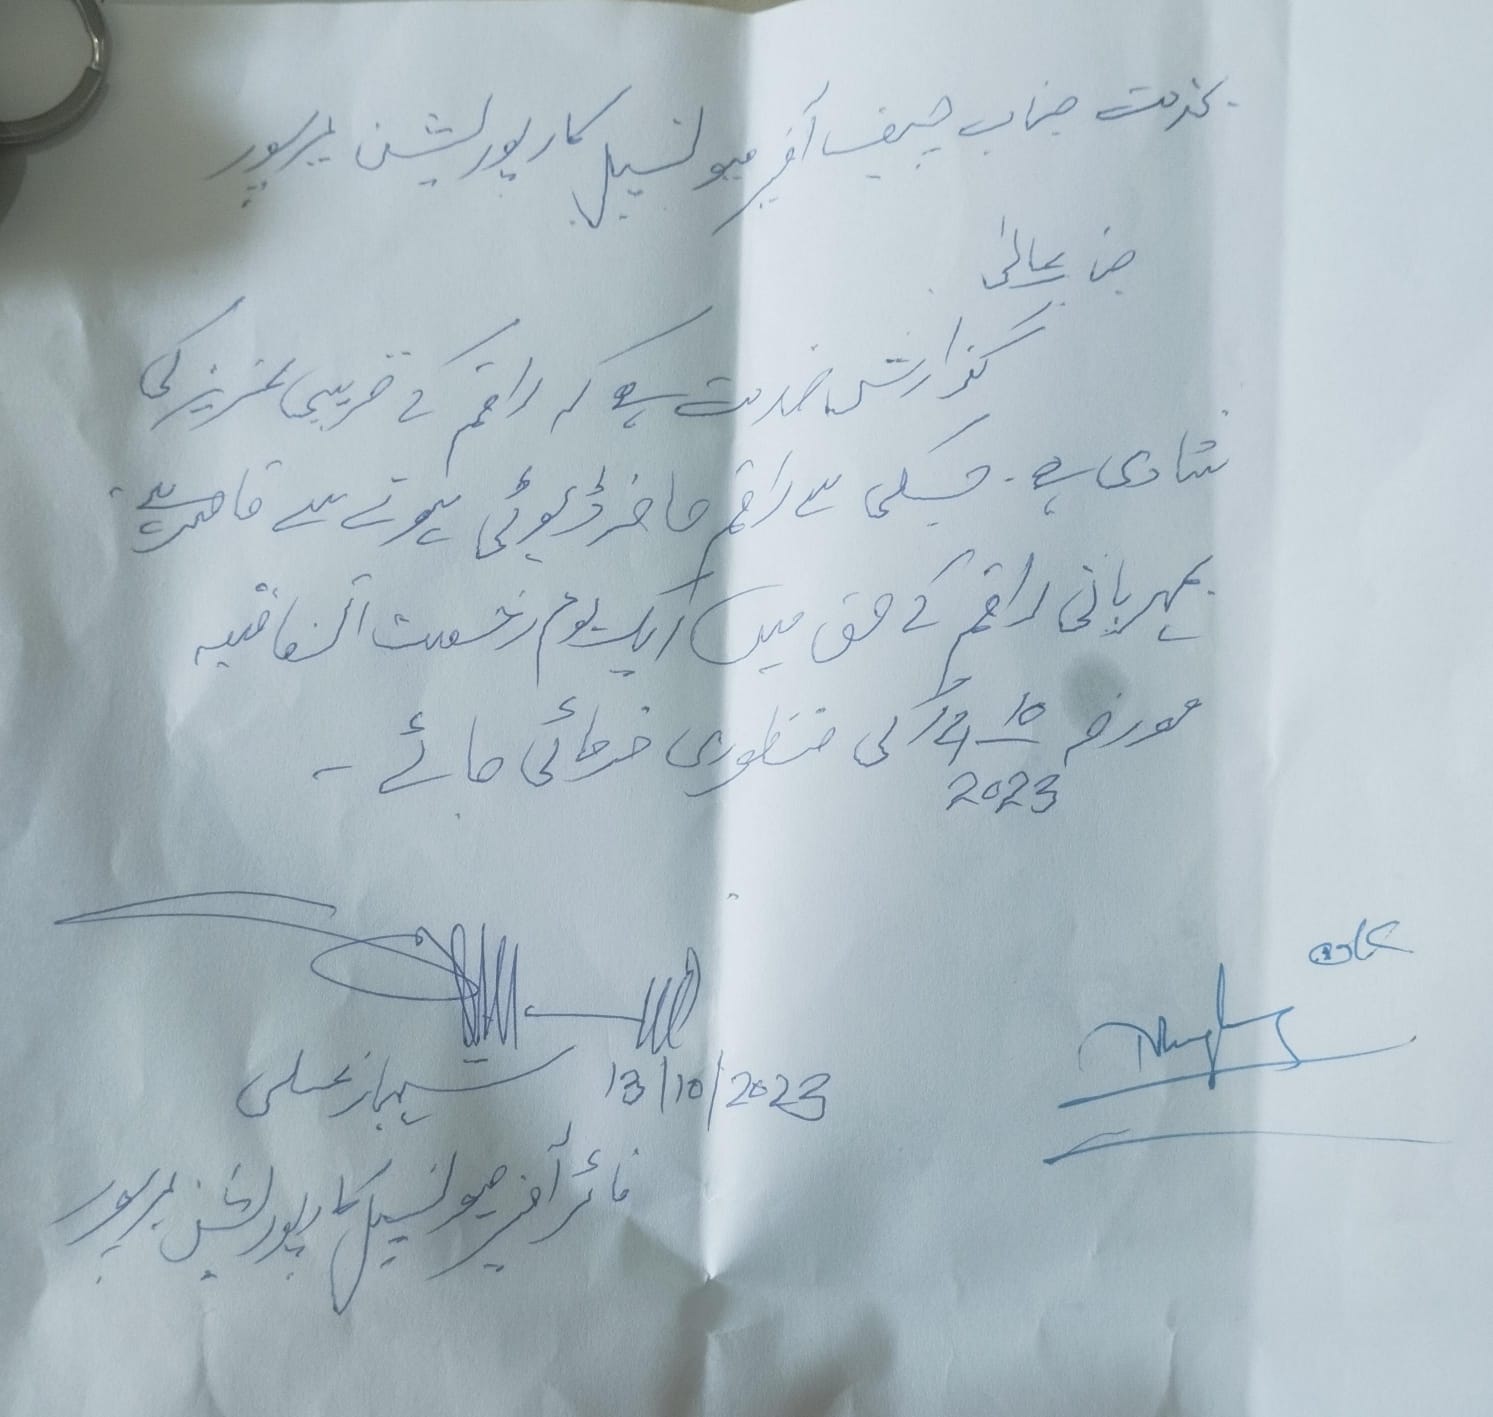 بخدمت جناب چیف آفیسر میونسپل کارپوریشن میرپور
جناب عالی
گذارش خدمت ہے کہ راقم کے قریبی عزیز کی
شادی ہے۔ جسکی سے راقم حاضر ڈیوٹی ہونے سے قاصر ہے
بمہربانی راقم کے حق میں ایک یوم رخصت اتفاقیہ
مورخہ 10 کی منظوری فرمائی جائے ۔
2023
OK
شہباز علی 13/10/2023
فائر آفیسر میونسپل کارپوریشن میرپور